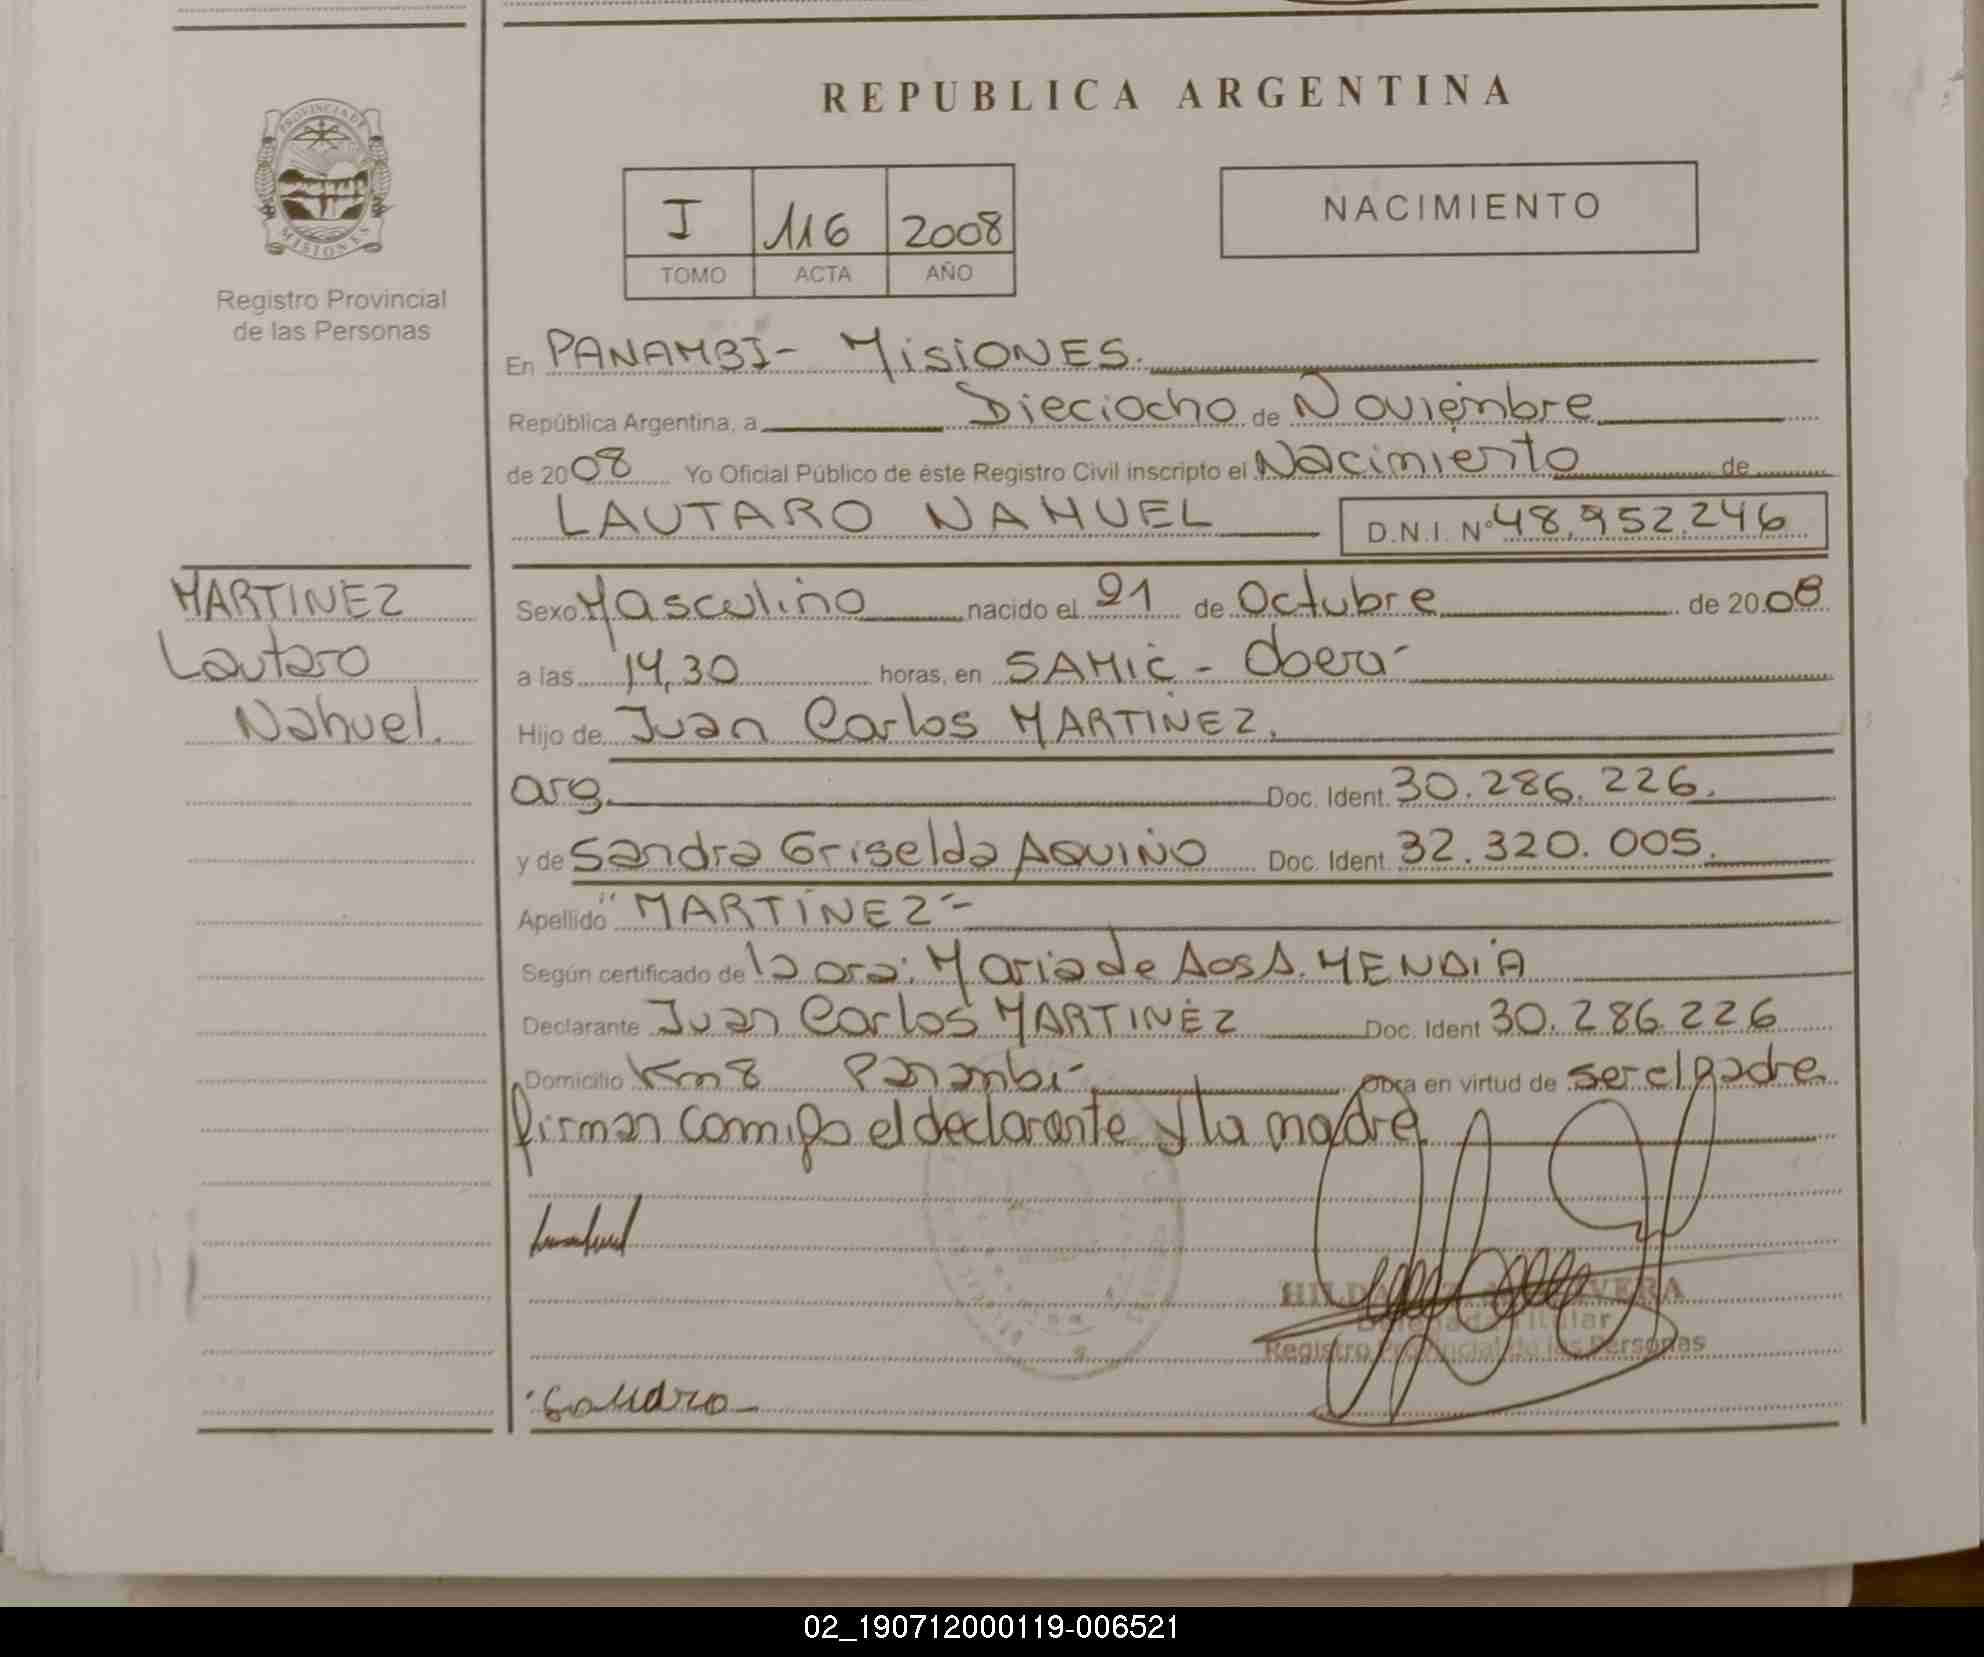 REPUBLICA ARGENTINA
PROVINCIA DE
MISIONES
Registro Provincial
de las Personas
I 116 2008
TOMO ACTA AÑO
NACIMIENTO
En PANAMBI - MISIONES.
República Argentina, a Dieciocho de Noviembre
de 2008 Yo Oficial Público de éste Registro Civil inscripto el Nacimiento de
LAUTARO NAHUEL D.N.I. Nº 48.952.246
MARTINEZ
Lautaro
Nahuel.
Sexo Masculino nacido el 21 de Octubre de 2008
a las 14,30 horas, en SAMIC - Obera-
Hijo de Juan Carlos MARTINEZ.
arg. Doc. Ident. 30.286.226.
y de Sandra Griselda AQUINO Doc. Ident. 32.320.005.
Apellido "MARTINEZ"-
Según certificado de la Dra: Maria de los A. MENDIA
Declarante Juan Carlos MARTINEZ Doc. Ident 30.286.226
Domicilio Km 8 Panambi- Obra en virtud de ser el padre
firman conmigo el declarante y la madre.
HILDA VERA
Delegada Titular
Registro Provincial de las Personas
02_190712000119-006521